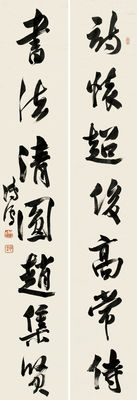 詩懷超俊高常侍
書法清圓趙集賢
溥儒